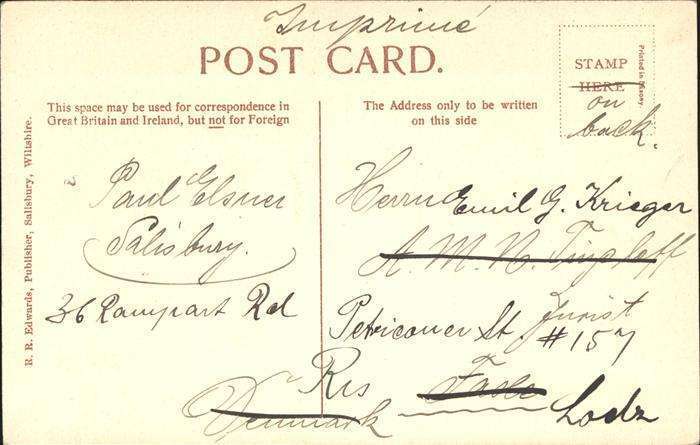 Imprimé
POST CARD.
STAMP
HERE
on
back.
Printed in Saxony
This space may be used for correspondence in
Great Britain and Ireland, but not for Foreign
The Address only to be written
on this side
R. R. Edwards, Publisher, Salisbury, Wiltshire.
Paul Elsner
Salisbury.
36 Rampart Rd
Herrn Emil G. Krieger
A. M. N.
Jurist
Petricauer St. #157
Rus
Lodz
Denmark